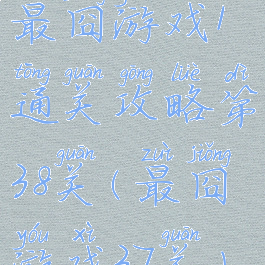 最囧游戏1
tōng guān gōng lüè dì
通关攻略第
guān zuì jiǒng
38关(最囧
yóu xì guān
游戏37关)